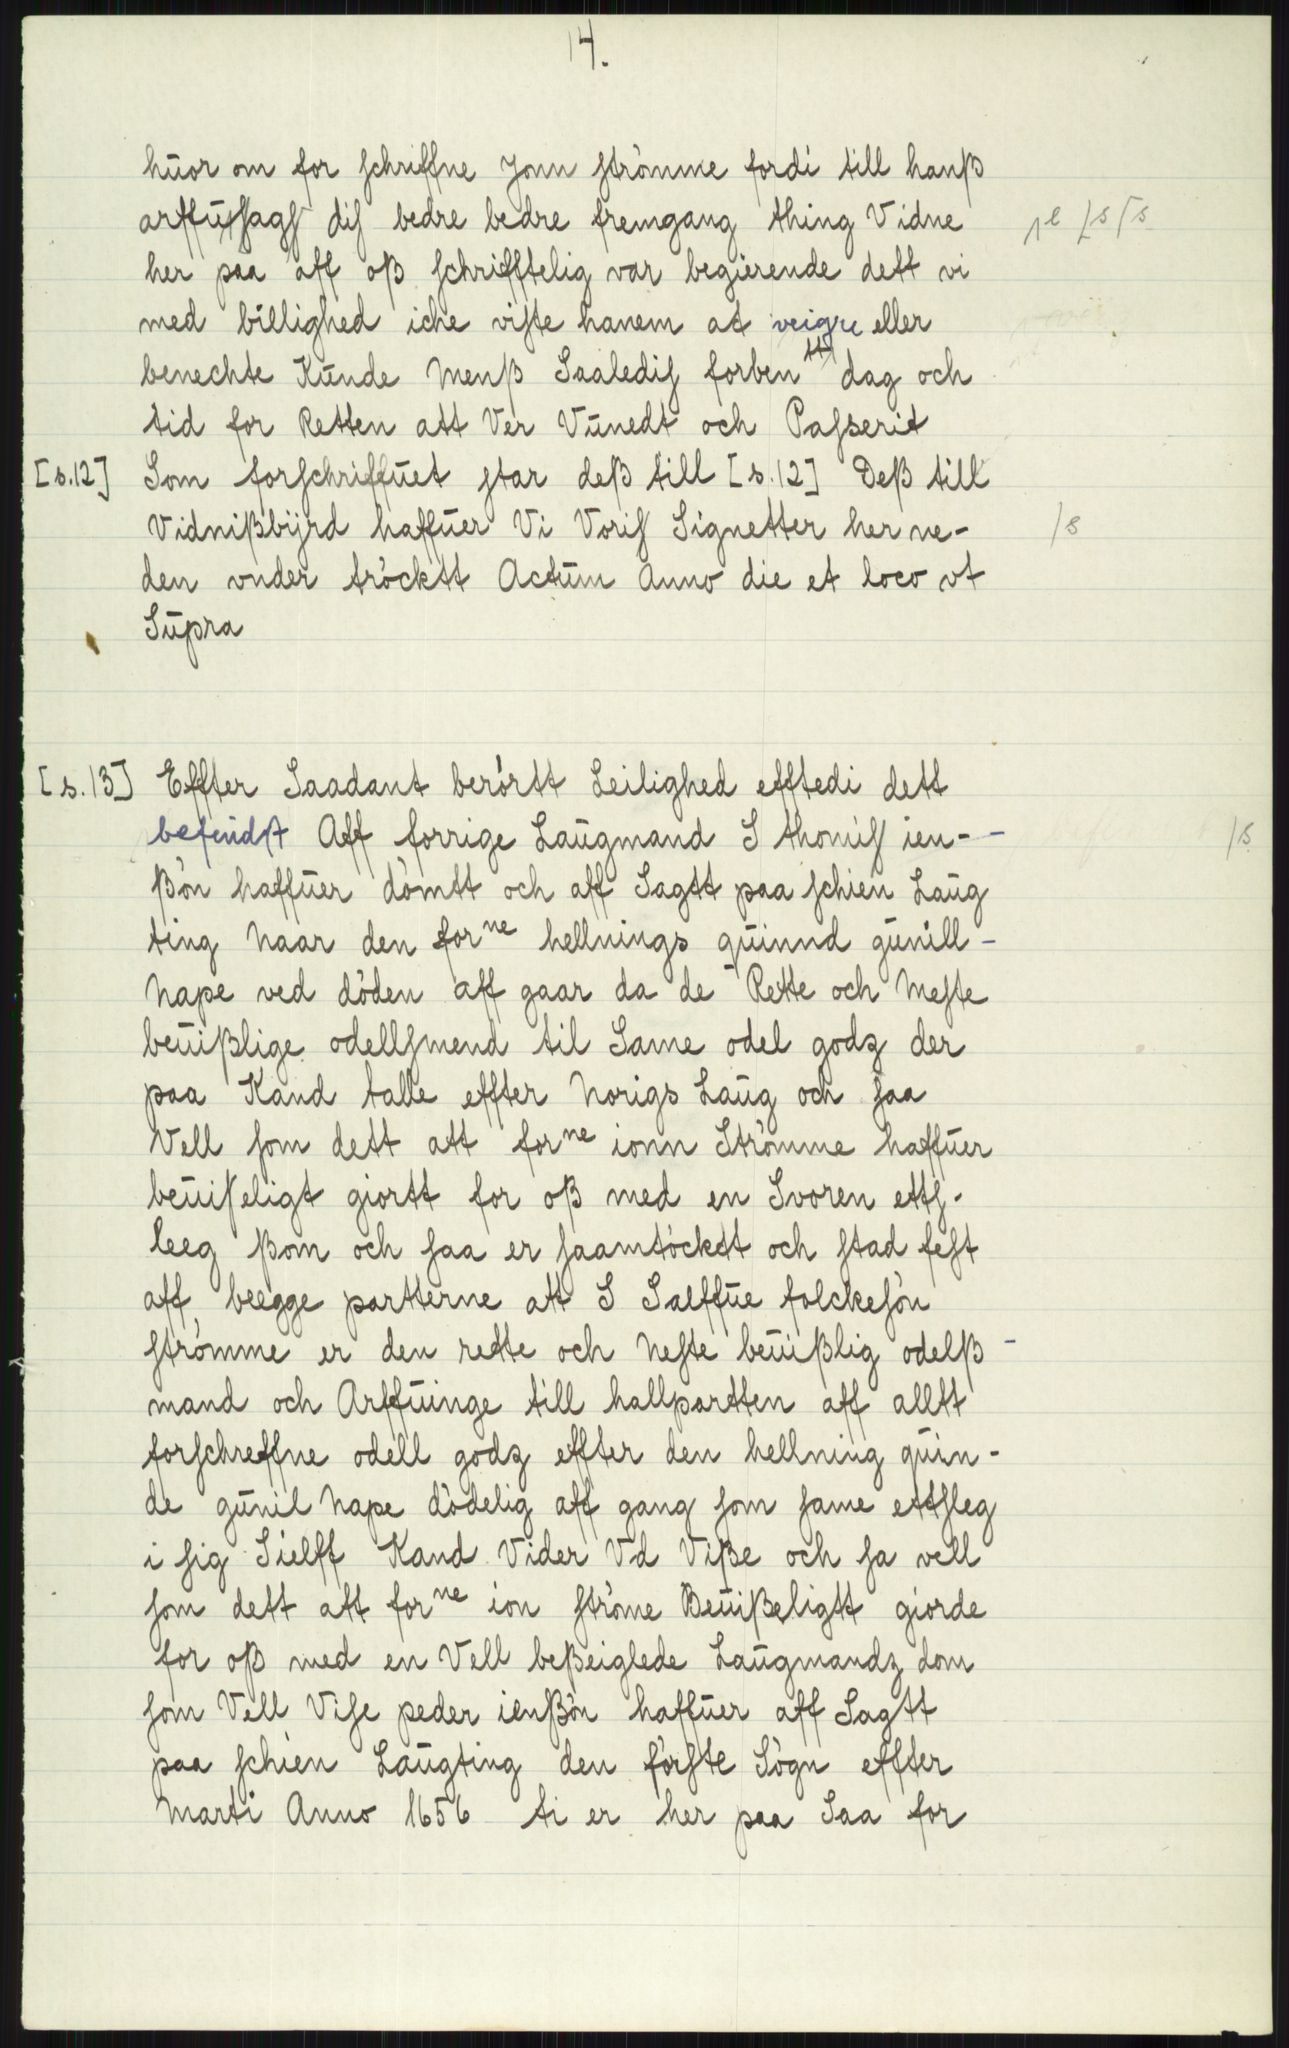 14.
hūor om for schriffne Jonn strömme fordi till hanß
arffūsags dis bedre bedre fremgang thing Vidne
her paa aff oß schrifftelig var begierende dett vi
med billighed iche viste hanem at veigre eller
benechte Kūnde Menß Saaledis forben tt dag och
tid for Retten att Ver Vūnedt och Passerit
[s.12] Som forschriffūet star deß till [s.12] Deß till
Vidnißbÿrd haffūer Vi Voris Signetter her ne-
den vnder tröcktt Actūm Anno die et loco vt
Sūpra
[s.13] Effter Saadant berörtt Leilighed efftedi dett
befindst Aff forrige Laūgmand S thomis ien-
ßön haffūer dömtt och aff Sagtt paa schien Laūg
ting Naar den for ne hellnings qūinnd gūnill-
Nape ved döden aff gaar da de Rette och Neste
beūißlige odellsmend til Same odel godz der
paa Kand talle effter Norigs Laūg och saa
Vell som dett att for ne ionn Strömme haffūer
beūiseligt giortt for oß med en Svoren etts-
leeg ßom och saa er saamtöcktt och stad fest
aff beegge partterne att S Salffūe folckesön
strömme er den rette och Neste beūißlig odelß-
mand och Arffūinge till hallpartten aff alltt
forschreffne odell godz effter den hellning qūin-
de gūnil Nape dödelig aff gang som same ettsleg
i sig Sielff Kand Vider Vd Viße och sa vell
som dett att for ne ion ströme Beūißeligtt giorde
for oß med en Vell beßeiglede Laūgmandz dom
som Vell Vise peder ienßön haffūer aff Sagtt
paa schien Laūgting den förste Sögn effter
Marti Anno 1656 ti er her paa Saa for